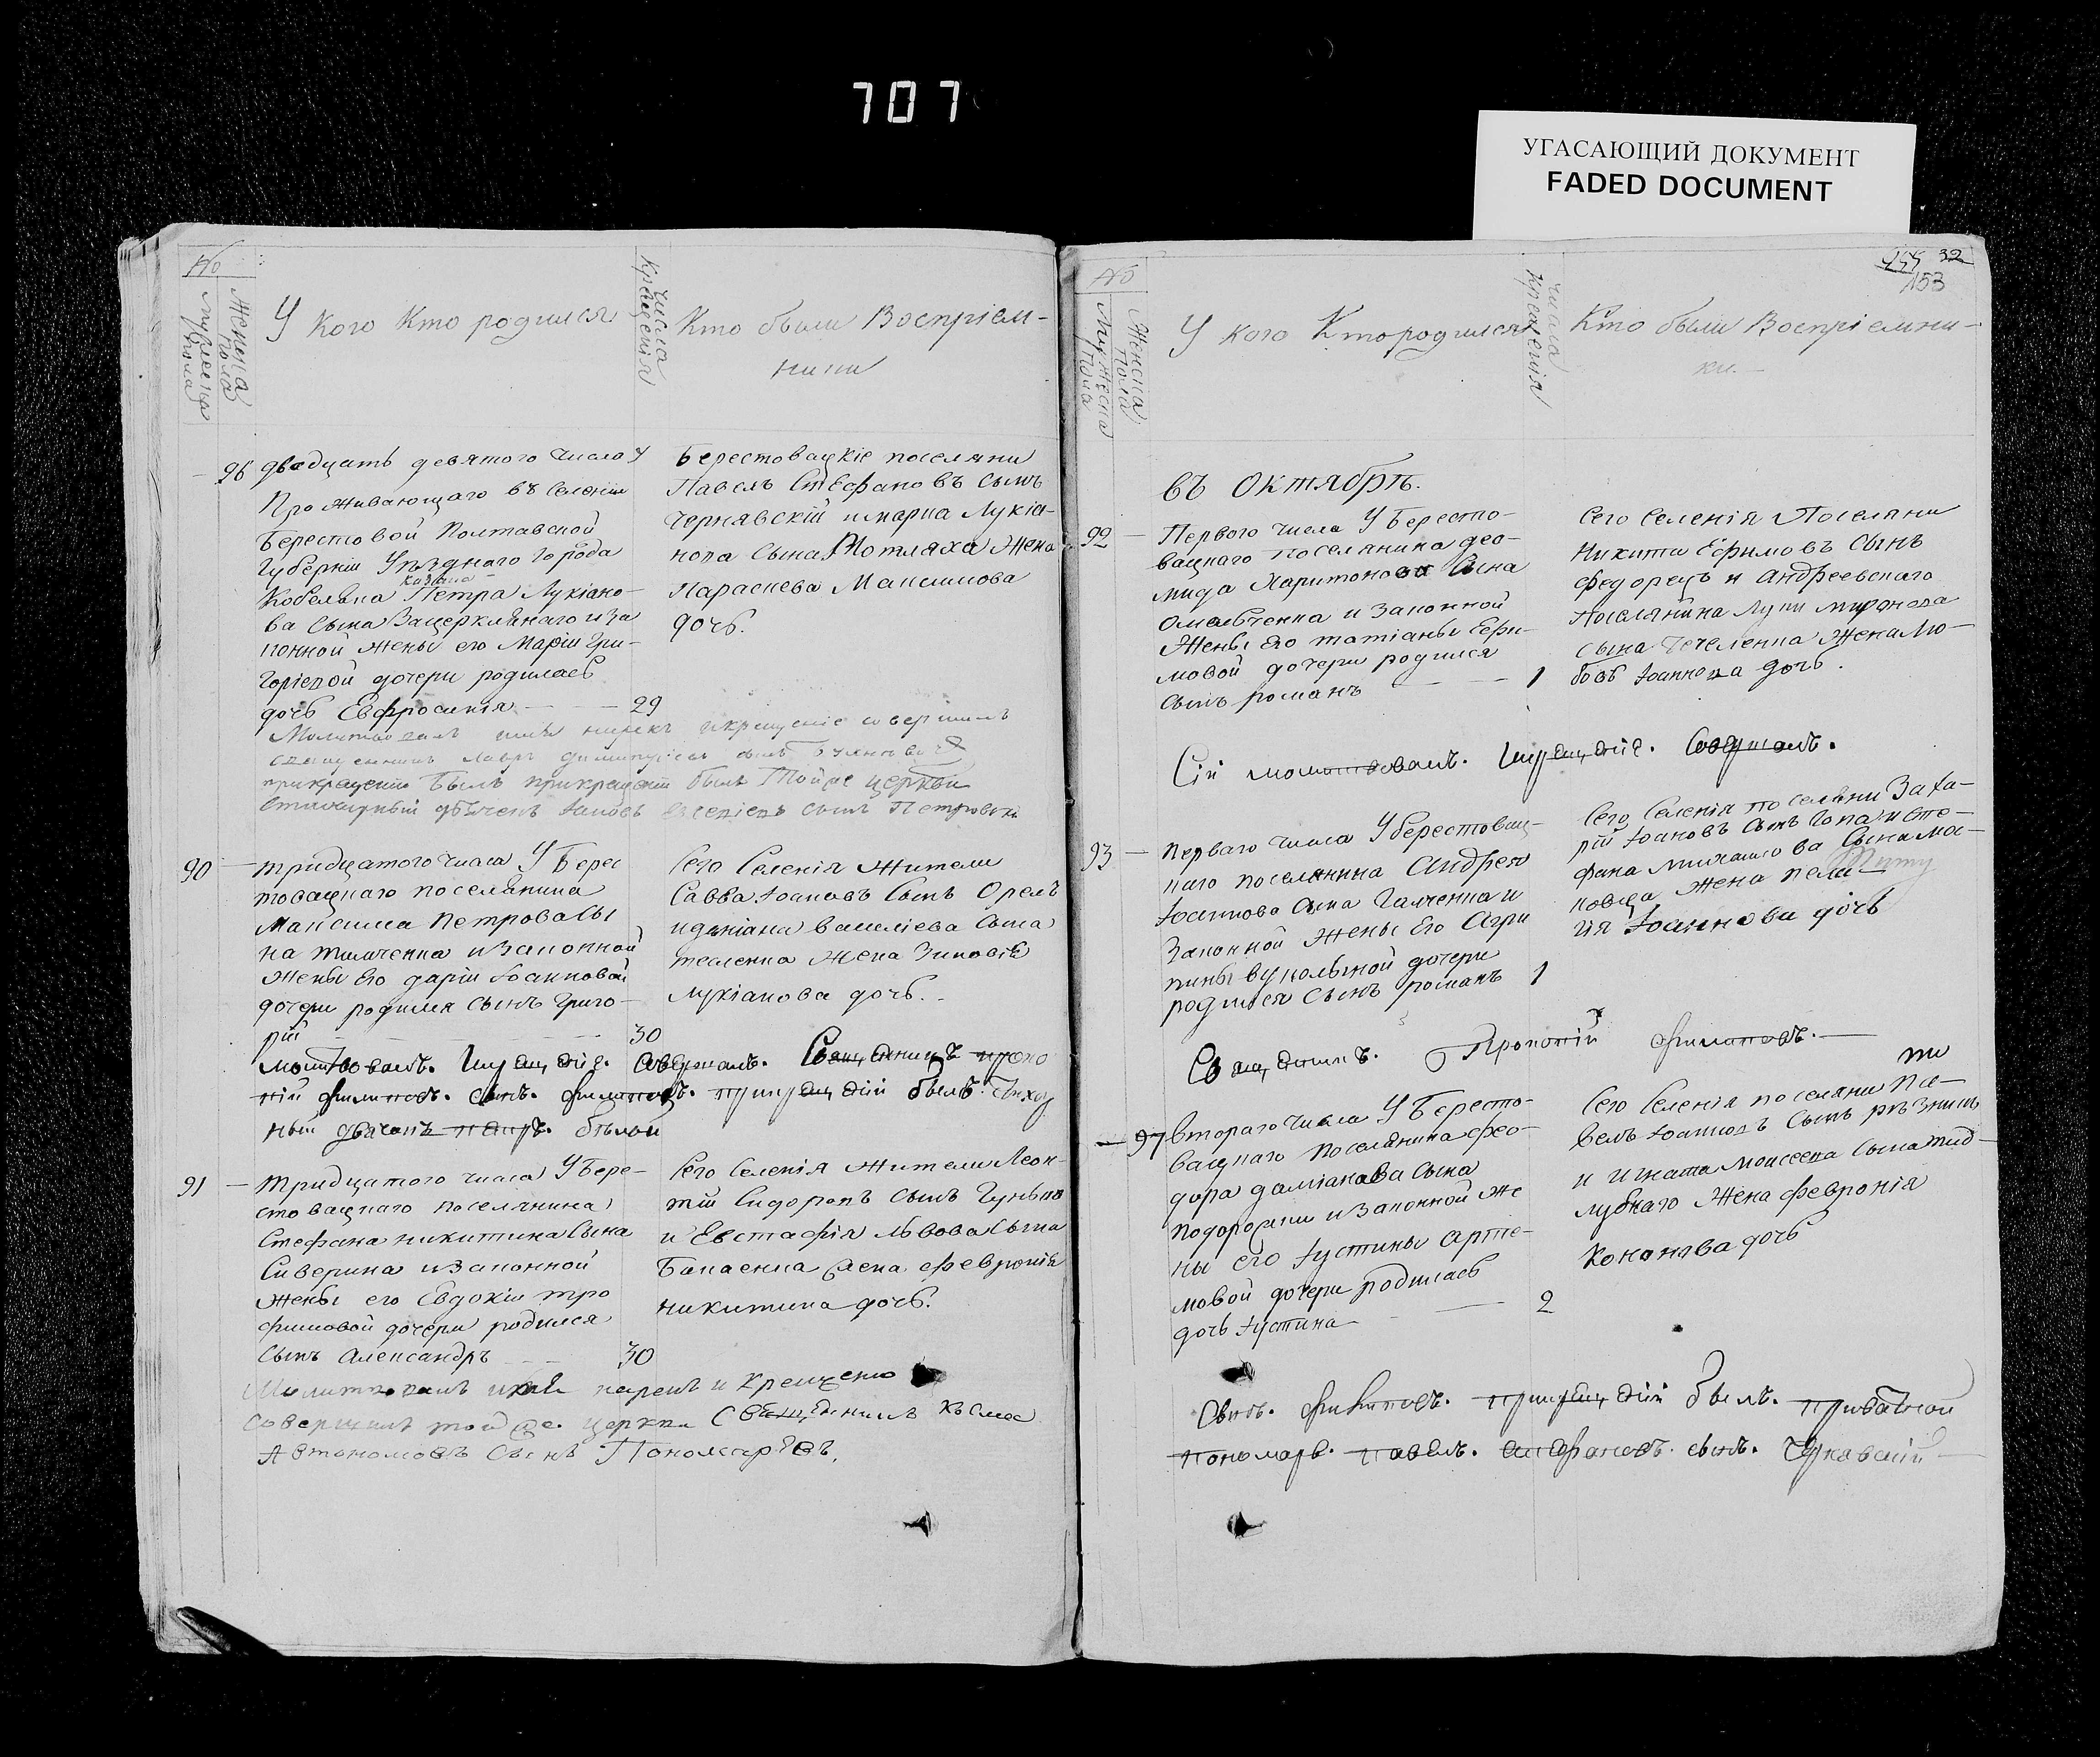 707
УГАСАЮЩИЙ ДОКУМЕНТ
FADED DOCUMENT
№
Мужеска пола
Женска пола
У кого кто родился
числа крещенія
Кто были Воспріем-
ники
96 двадцать девятого числа У
Проживающаго въ селеніи
Берестовой Полтавской
Губерніи Уѣзднаго города
казака
Кобеляка Петра Лукіано-
ва сына Зацерклянаго и за
конной жены его Маріи Гри-
горіевой дочери родилась
дочь Евфросинія 29
Берестовацкіе поселяни
Павелъ Стефановъ сынъ
Чернявскій и марка Лукіа-
нова сына Мотляха жена
Параскева Максимова
дочь.
Молитвовалъ имя нарекъ и крещеніе совершилъ
прикрещеніи былъ той же церкви
сынъ Петровскій
90 тридцатого числа У Берес
товацкаго поселянина
Максима Петрова сы
на Ткаченка и законной
жены его даріи Іоанновой
дочери родился сынъ Григо-
рій 30
Сего селенія жители
Савва Іоановъ сынъ Орелъ
и даміана василіева сына
тесленка жена Зиновія
лукіанова дочь.
молитвовалъ. И крещеніе. совершалъ. Священникъ проко
пій филиповъ. сынъ. филиповъ. при крещеніи былъ.
91 тридцатого числа У Бере-
стовацкаго поселянина
Стефана никитина сына
Сиверина и законной
жены его Евдокіи тро
фимовой дочери родился
сынъ Александръ 30
Сего селенія жители Леон-
тій Сидоровъ сынъ Гунько
и Евстафія Львова сына
Бакаенка жена февронія
никитина дочь.
Молитвовалъ имя нарекъ и крещеніе
совершилъ той же церкви Священникъ Косма
Автономовъ Сынъ Пономарѣвъ.
32
153
№
Мужеска Пола
Женска Пола
У кого Кто родился
числа крещенія
Кто были Воспріемни-
ки.
въ Октябрѣ.
92 Перваго числа У Бересто-
вацкаго поселянина део-
мида Харитонова сына
Омельченка и законной
жены его татіаны Ефи-
мовой дочери родился
сынъ романъ 1
Сего селенія Поселяни
Никита Ефимовъ сынъ
федорецъ и Андреевскаго
поселянина Луки миронова
сына Чечеленка жена Лю-
бовь Іоаннова дочь.
Сій молитвовалъ. И крещеніе. Совершалъ.
93 перваго числа У берестовац-
каго поселянина Андрея
Іоаннова сына Галченка и
Законной жены Его Агри
пины вукольиной дочери
родился сынъ романъ 1
Сего селенія поселяни Заха-
рій Іоановъ сынъ Гопа и сте-
фана михаилова сына мос-
ковца жена пела
гія Іоаннова дочь
Священникъ. Прокопій филиповъ.
97 втораго числа У Бересто-
вацкаго поселянина фео-
дора даміанова сына
подорожки и законной же
ны его Іустины Арте-
мовой дочери родилась
дочь Іустина 2
Сего селенія поселяни Па-
велъ Іоанновъ сынъ рѣзникъ
и игната Моисеева сына
жена февронія
Кононова дочь
Свящ. филиповъ. при крещеніи былъ. приватной
пономарь. павелъ. стефановъ. сынъ. Чернавскій